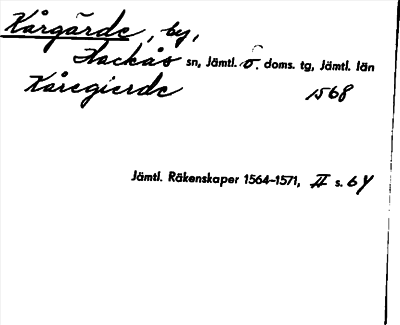 Kårgärde, by,
Hackås sn, Jämtl. ö. doms. tg, Jämtl. län
Kåregierde 1568
Jämtl. Räkenskaper 1564-1571, II s. 64